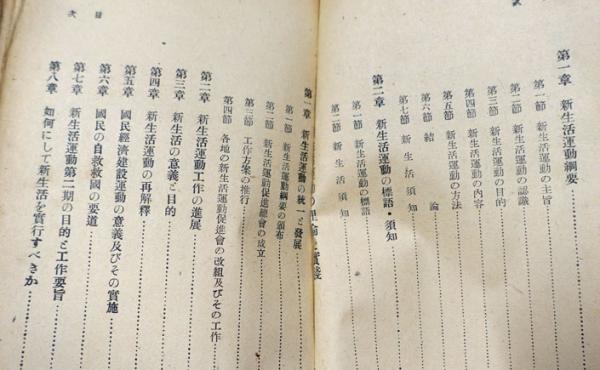 次
第一章 新生活運動綱要
第一節 新生活運動の主旨
第二節 新生活運動の認識
第三節 新生活運動の目的
第四節 新生活運動の內容
第五節 新生活運動の方法
第六節 結論
第七節 新生活須知
第二章 新生活運動の標語・須知
第一節 新生活運動の標語
第二節 新生活須知
第一章 新生活運動の統一と發展
第一節 新生活運動綱要の頒布
第二節 新生活運動促進總會の成立
第三節 工作方案の推行
第四節 各地の新生活運動促進會の改組及びその工作
第二章 新生活運動工作の進展
第三章 新生活の意義と目的
第四章 新生活運動の再解釋
第五章 國民經濟建設運動の意義及びその實施
第六章 國民の自救救國の要道
第七章 新生活運動第二期の目的と工作要旨
第八章 如何にして新生活を實行すべきか
目次